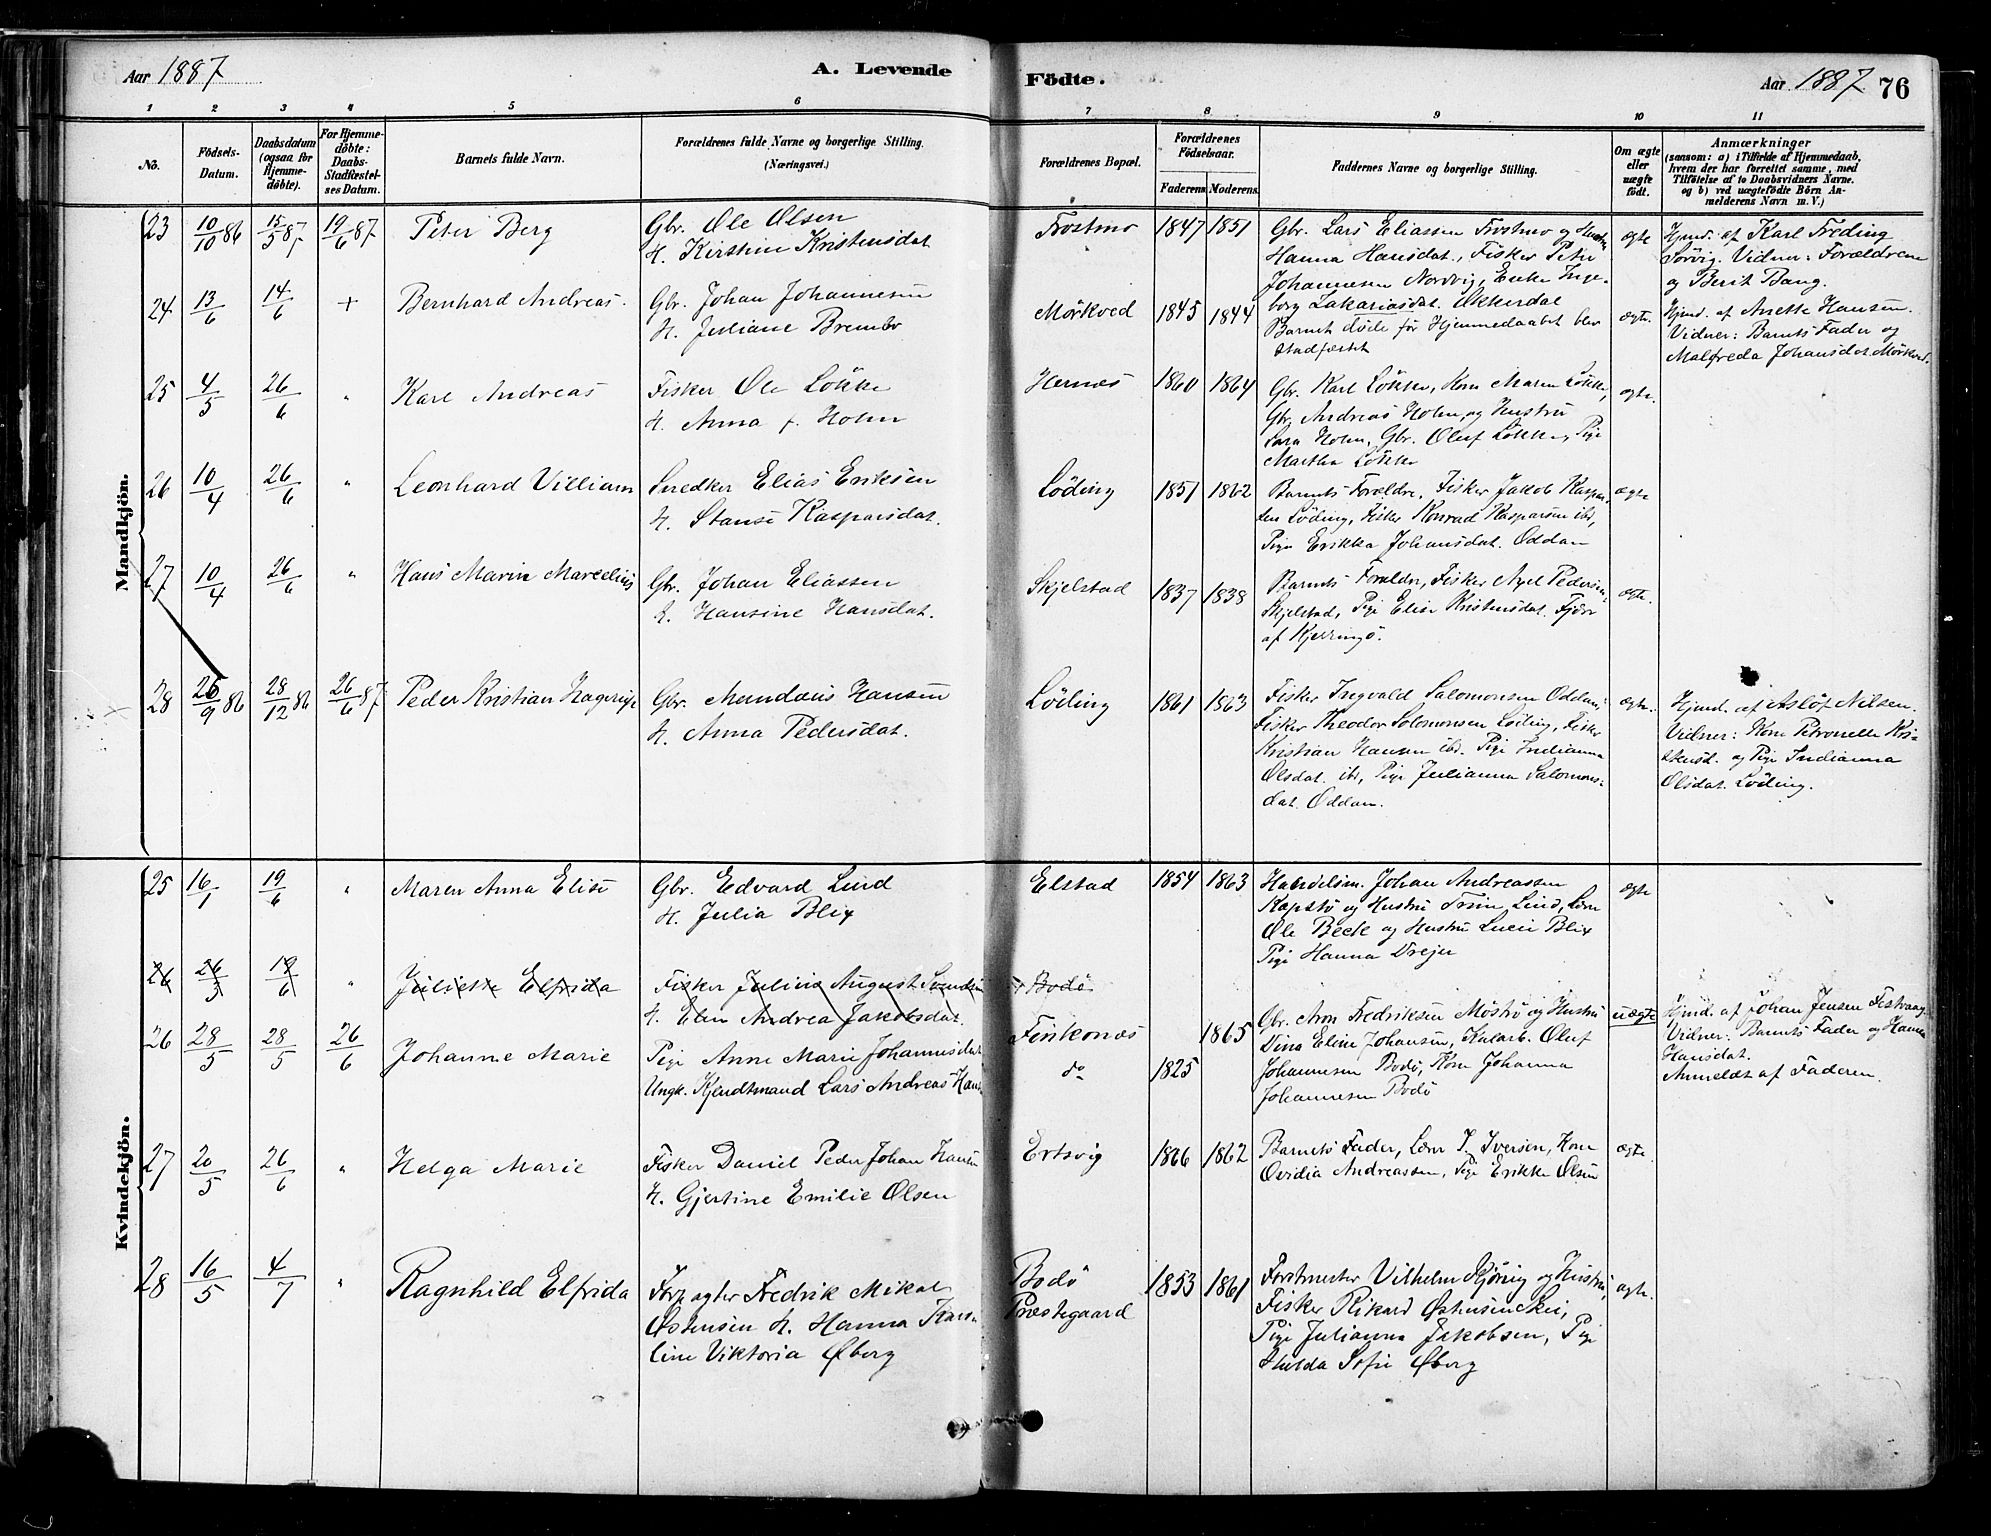 Aar 1887
A. Levende
Födte.
Aar 1887
76
1 2 3 4 5 6 7 8 9 10 11
No.
Födsels-
Datum.
Daabsdatum
(ogsaa for
Hjemme-
døbte).
For Hjemme-
døbte:
Daabs-
Stadfæstel-
ses Datum.
Barnets fulde Navn.
Forældrenes fulde Navne og borgerlige Stilling.
(Næringsvei.)
Forældrenes Bopæl.
Forældrenes
Födselsaar.
Faderens. Moderens.
Faddernes Navne og borgerlige Stilling.
Om ægte
eller
uægte
født.
Anmærkninger
(saasom: a) i Tilfælde af Hjemmedaab,
hvem der har forrettet samme, med
Tilföielse af to Daabsvidners Navne.
og b) ved uægtefödte Börn An-
melderens Navn m. V.)
Mandkjön.
23 10/10 86 15/5 87 19/6 87 Peter Berg
Gbr. Ole Olsen
H. Kirstine Kristensdat
Frostmo 1847 1851
Gbr. Lars Eliassen Frostmo og Hustru
Hanna Hansdat., Fisker Peter
Johannesen Nordvig, Enke Inge-
borg Zakariasdat. Økkerdal
ægte
Hjmd. af Karl Freding
Sørvig. Vidner: Forældrene
og Berit Bang.
24 13/6 14/6 + Bernhard Andreas
Gbr. Johan Johannesen
H. Juliane Brembo
Mörkved 1845 1844
Barnet døde før Hjemmedaabet blev
stadfæstet
ægte.
Hjmd. af Anette Hansen.
Vidner: Barnets Fader og
Malfreda Johansdat Mörkved.
25 4/5 26/6 " Karl Andreas
Fisker Ole Lökke
H. Anna f. Holm
Hernæs 1860 1864
Gbr. Karl Løkke, Kone Maren Løkke,
Gbr. Andreas Holm og Hustru
Sara Holm, Gbr. Oluf Løkke, Pige
Martha Løkke
ægte.
26 10/4 26/6 " Leonhard Villiam
Snedker Elias Eriksen
H. Stanse Kasparsdat.
Löding 1851 1862
Barnets Forældre, Fisker Jakob Kaspar-
sen Løding, Fisker Konrad Kasparsen ibd,
Pige Erikka Johansdat. Oddan
ægte
27 10/4 26/6 " Hans Marin Marcelius
Gbr. Johan Eliassen
H. Hansine Hansdat.
Skjelstad 1837 1838
Barnets Forældre, Fisker Axel Pedersen
Skjelstad, Pige Elise Kristensdat. Fjær
af Kjerringø.
ægte.
28 26/9 86 28/12 86 26/6 87 Peder Kristian Hagerup
Gbr. Mundæus Hansen
H. Anna Pedersdat.
Löding 1861 1863
Fisker Ingvald Salomonsen Oddan,
Fisker Theodor Solomonsen Løding, Fisker
Kristian Hansen ibd. Pige Indianna
Olsdat. ibd, Pige Julianna Salomons-
dat. Oddan.
ægte.
Hjmd. af Aslöf Nilsen.
Vidner: Kone Petronelle Kri-
stensd. og Pige Indianna
Olsdat. Løding.
Kvindekjön.
25 16/1 19/6 " Maren Anna Elise
Gbr. Edvard Lind
H. Julia Blix
Elstad 1854 1863
Handelsm. Johan Andreassen
Kapstø og Hustru Trine Lind, Lærer
Ole Beck og Hustru Lucie Blix
Pige Hanna Drejer
ægte
26 26/5 19/6 " Juliette Elfrida
Fisker Julius August Svendsen
H. Elen Andrea Jakobsdat.
Bodø
26 28/5 28/5 26/6 Johanne Marie
Pige Anne Marie Johannesdat
Ungk. Kjendtsmand Lars Andreas Hans.
Finkonæs 1865
do 1825
Gbr. Aron Fredriksen Møstø og Hustru
Dina Eline Johansen, Kalarb. Oluf
Johannesen Bodø, Kone Johanna
Johannesen Bodø
uægte
Hjmd. af Johan Jensen Festvaag
Vidner: Barnets Fader og Hanna
Hansdat.
Anmeldt af Faderen.
27 20/5 26/6 " Helga Marie
Fisker Daniel Peder Johan Hansen
H. Gjertine Emilie Olsen
Ertsvig 1866 1862
Barnets Fader, Lærer I. Iversen, Kone
Ovidia Andreassen, Pige Erikke Olsen
ægte.
28 16/5 4/7 " Ragnhild Elfrida
Forpagter Fredrik Mikal
Østensen H. Hanna Karo-
line Viktoria Øberg
Bodö
Præstegaard
1853 1861
Forstmester Vilhelm Kjørig og Hustru,
Fisker Rikard Østensen Skei,
Pige Julianna Jakobsen, Pige
Hulda Sofie Øberg
ægte.